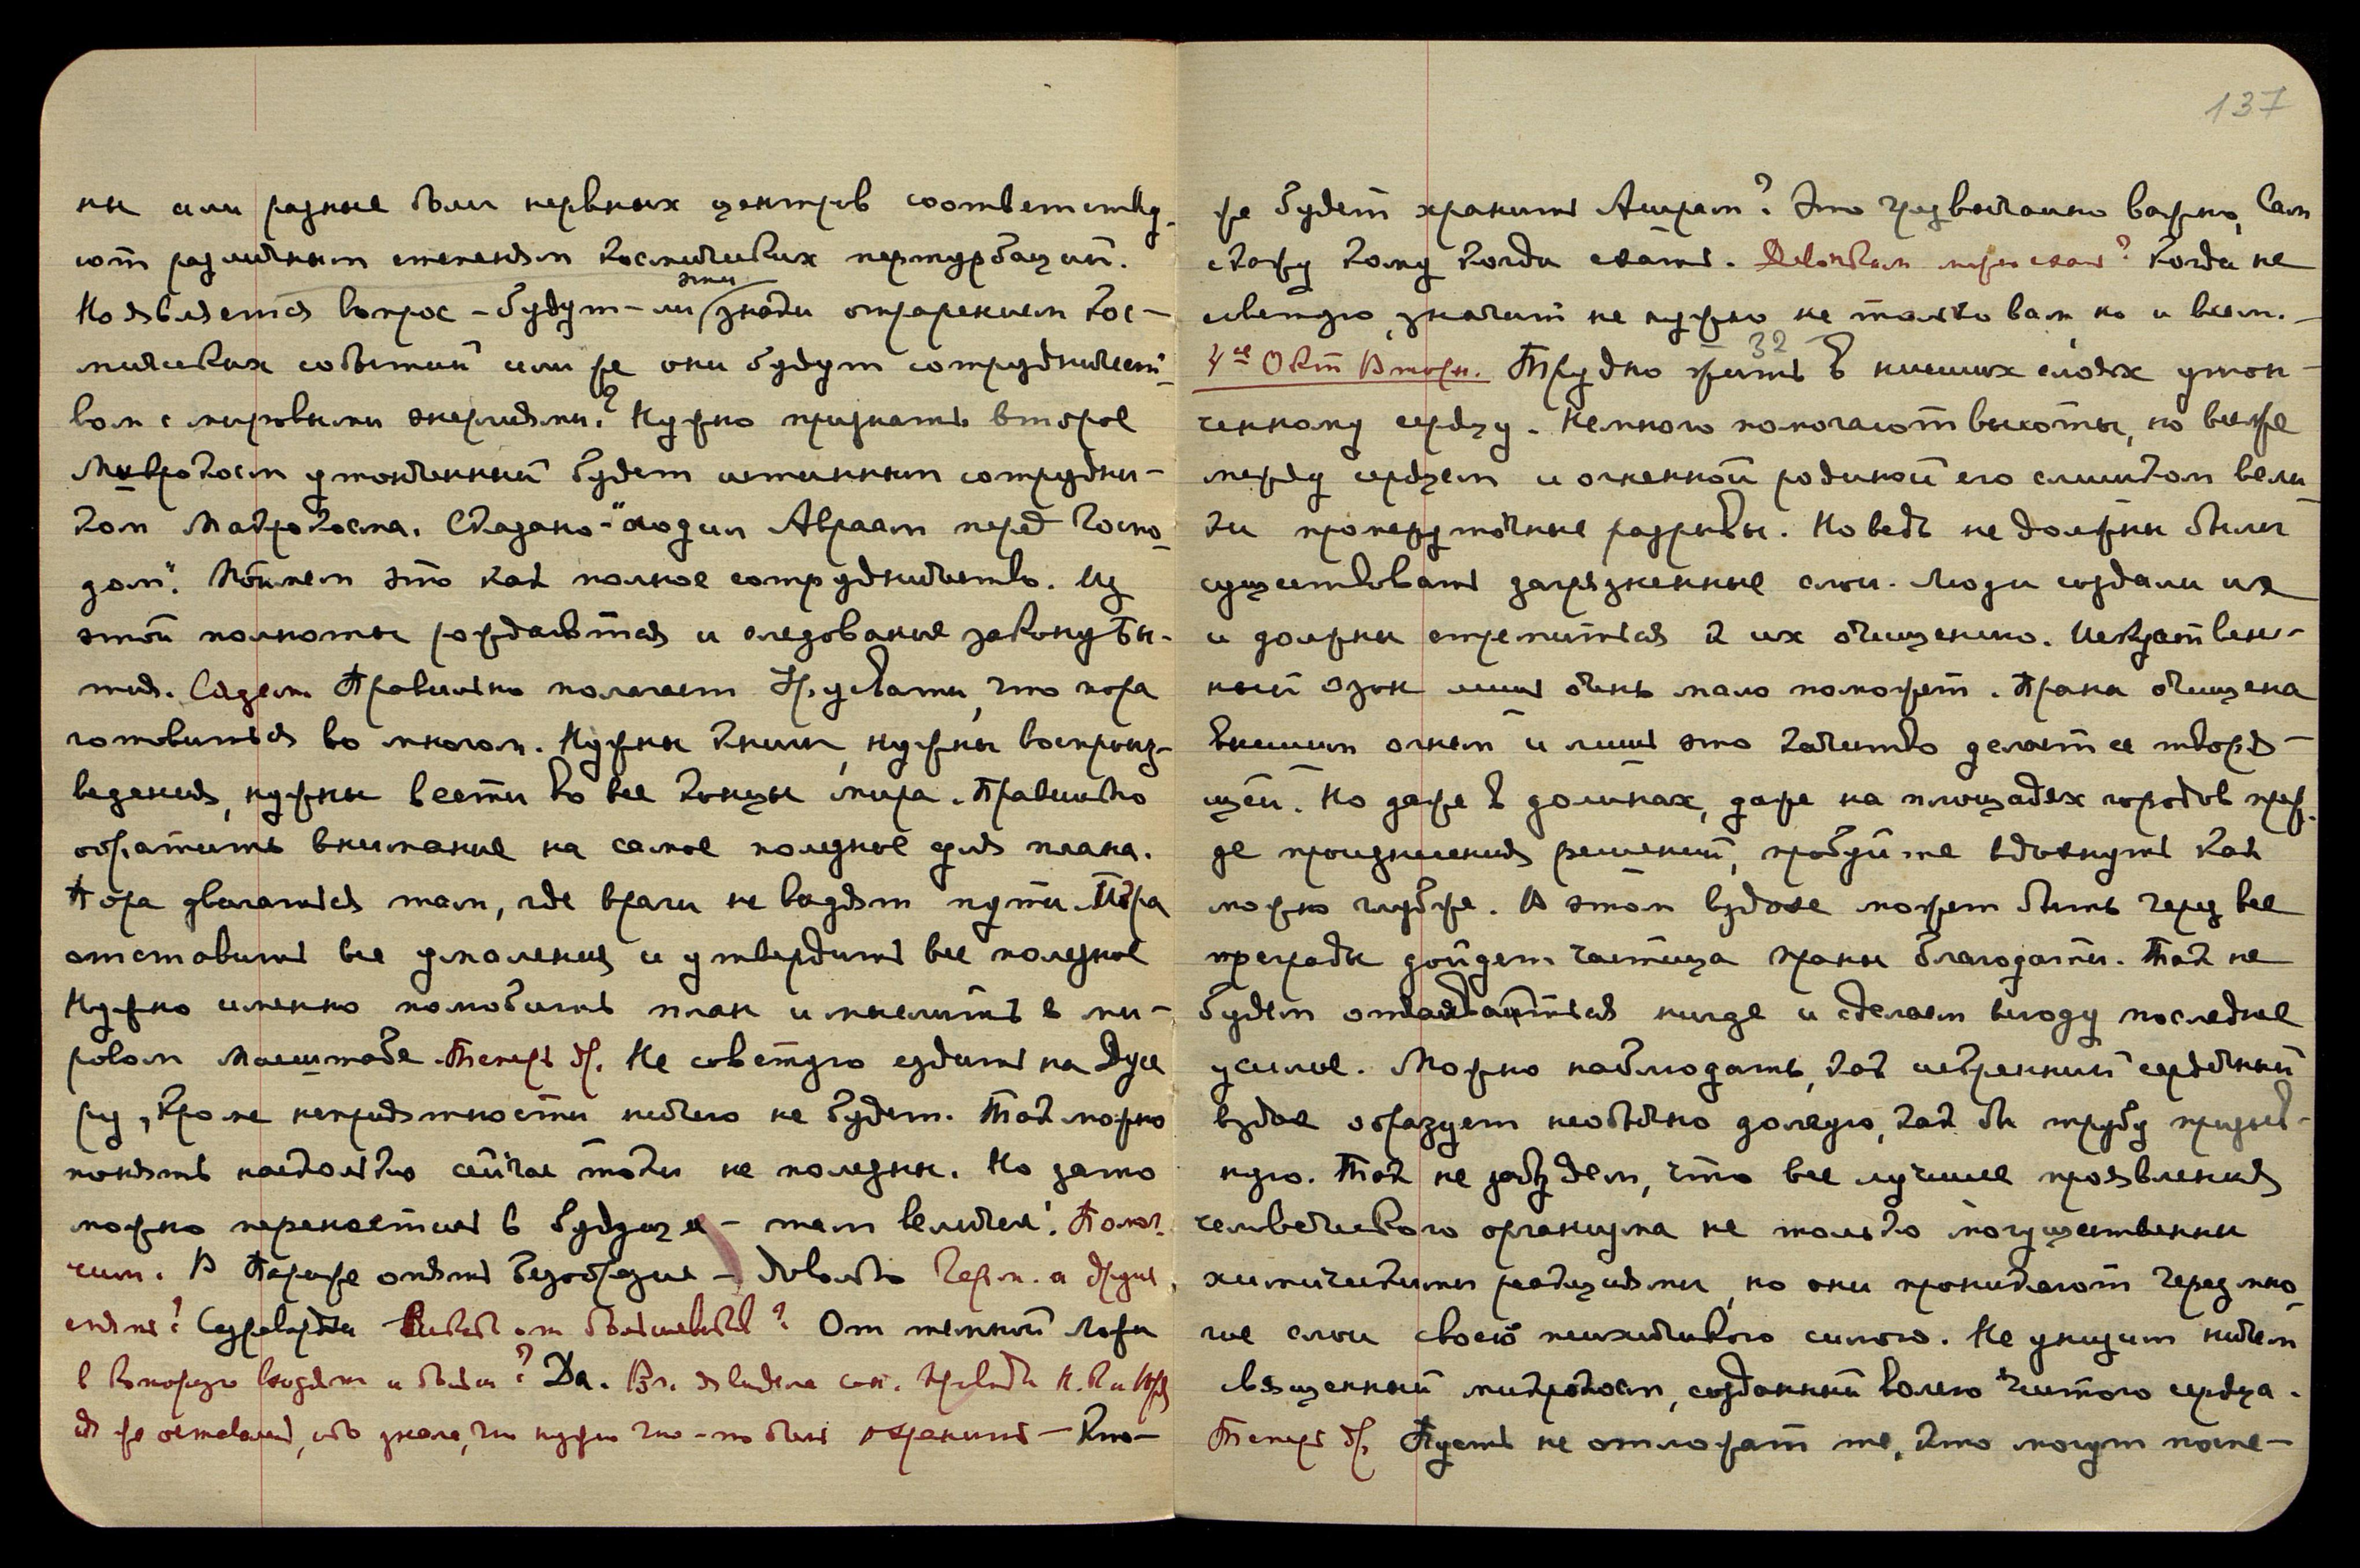 ны или разные боли нервных центров соответству-
ют различным степеням космических пертурбаций.
эти
Но является вопрос – будут-ли знаки отражением кос-
мических событий или же они будут сотрудничест-
вом с мировыми энергиями? Нужно признать второе
Микрокосм утонченный будет истинным сотрудни-
ком Макрокосма. Сказано – "ходил Авраам перед Госпо-
дом". Поймем это как полное сотрудничество. Из
этой полноты рождается и следование закону бы-
тия. Правильно полагает Урусвати, что пора
готовиться во многом. Нужны книги, нужны воспроиз-
ведения, нужны вести во все концы мира. Правильно
обратить внимание на самое полезное для плана.
Пора двигаться там, где враги не видят пути. Пора
отставить все умаления и утвердить все полезное
Нужно именно полюбить план и мыслить в ми-
ровом масштабе. Теперь др. Не советую ездить на
ру, кроме неприятности ничего не будет. Так можно
понять насколько сейчас токи не полезны. Но зато
можно перенестись в будущее – там величие!
чим. В Париже опять безобразие –
опять? от большевиков? От темной ложи
в которую входят и большев? Да. Вл. я видела сон.
я же оставалась, ибо знала, что нужно что-то было охранить – Кто-
137
же будет хранить Ашрам? Это чрезвычайно важно, Сам
скажу кому когда ехать. можно ехать? Когда не
советую, значит не нужно не только вам но и всем. –
32
4ое Окт Вторн. Трудно жить в низших слоях утон-
ченному сердцу. Немного помогают высоты, но все же
между сердцем и огненной родиной его слишком вели-
ки промежуточные разрывы. Но ведь не должны были
существовать загрязненные слои. Люди создали их
и должны стремиться к их очищению. Искусствен-
ный озон лишь очень мало поможет. Прана очищена
высшим огнем и лишь это качество делает ее творя-
щей. Но даже в долинах, даже на площадях городов преж-
де произнесения решений, пробуйте вдохнуть как
можно глубже. В этом вздохе может быть через все
преграды дойдет частица праны благодати. Так не
будем отчаиваться нигде и сделаем всюду последнее
усилие. Можно наблюдать, как искренний сердечный
вздох образует необычно долгую, как бы трубу призыв-
ную. Так не забудем, что все лучшие проявления
человеческого организма не только могущественны
химическими реакциями, но они проникают через мно-
гие слои своею психическою силою. Не унизим ничем
священный микрокосм, созданный волею чистого сердца.
Теперь др. Пусть не отложат те, кто могут поме-